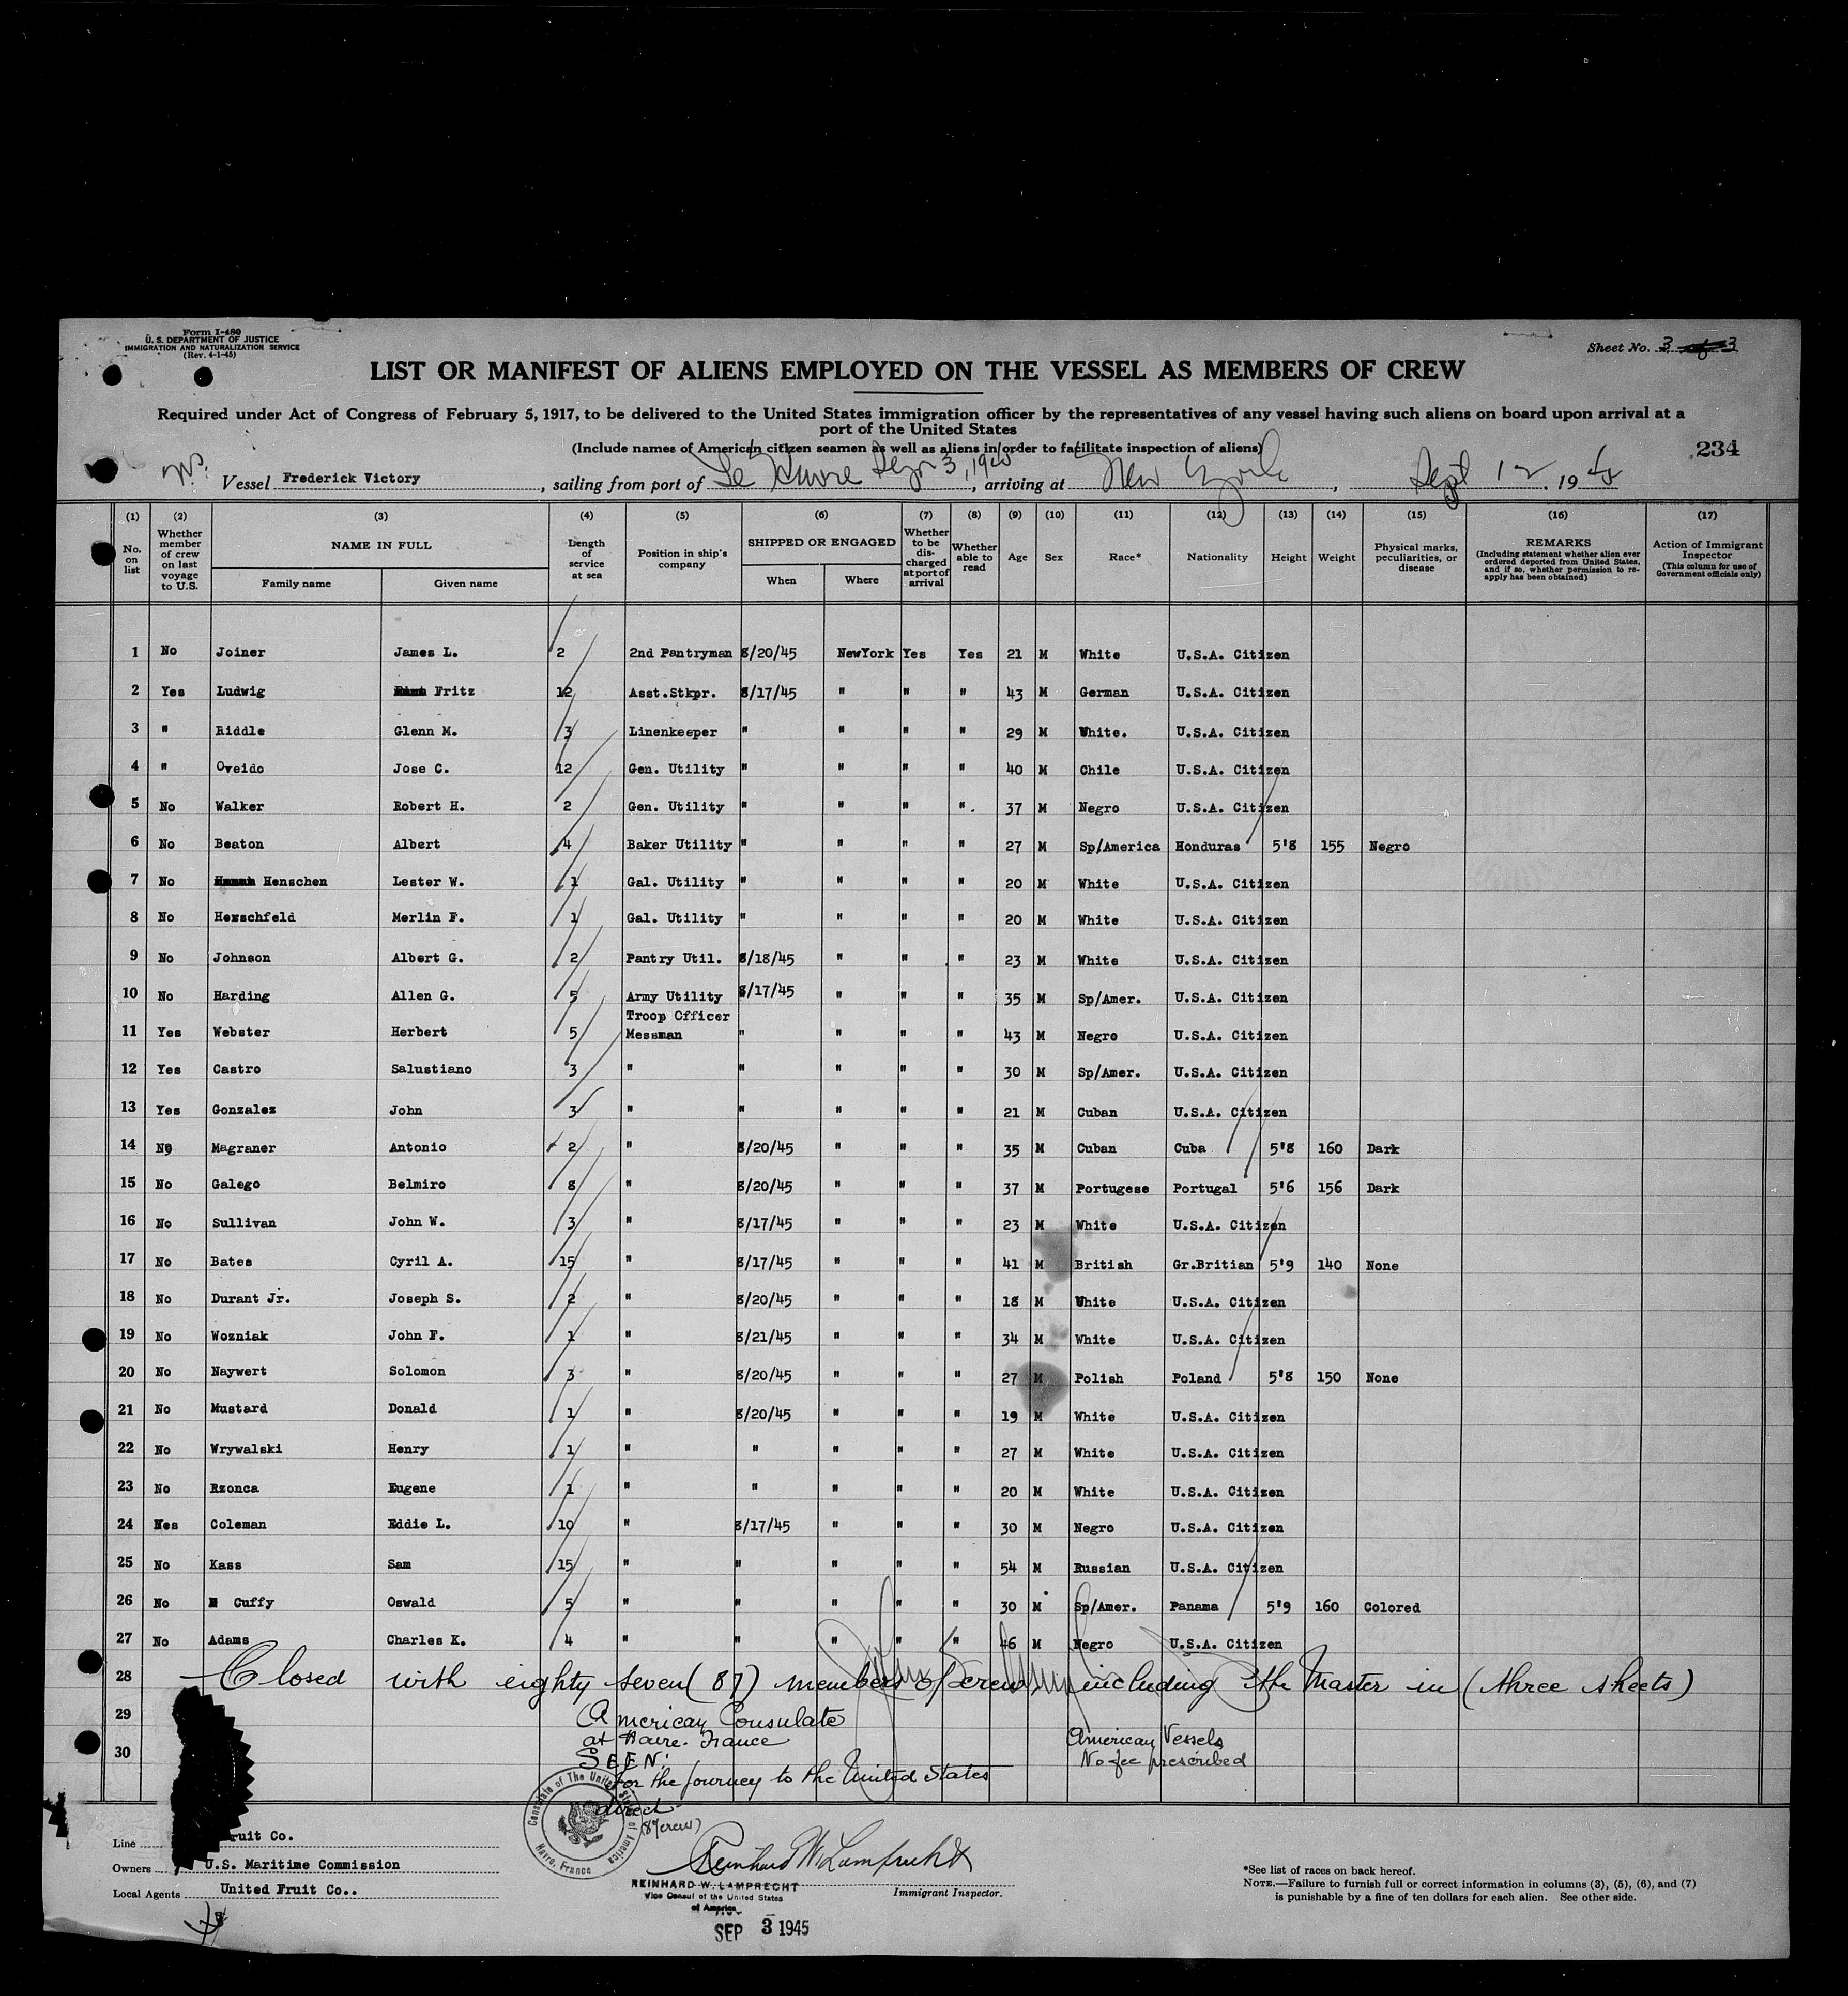 Form I-480
U. S. DEPARTMENT OF JUSTICE
IMMIGRATION AND NATURALIZATION SERVICE
(Rev. 4-1-45)
Sheet No. 3 of 3
LIST OR MANIFEST OF ALIENS EMPLOYED ON THE VESSEL AS MEMBERS OF CREW
Required under Act of Congress of February 5, 1917, to be delivered to the United States immigration officer by the representatives of any vessel having such aliens on board upon arrival at a
port of the United States
(Include names of American citizen seamen as well as aliens in order to facilitate inspection of aliens)
234
Vessel Frederick Victory, sailing from port of Le Havre Sept 3, 1945, arriving at New York, Sept 12, 1945
(1) (2) (3) (4) (5) (6) (7) (8) (9) (10) (11) (12) (13) (14) (15) (16) (17)
No. on list Whether member of crew on last voyage to U.S. NAME IN FULL Family name Given name Length of service at sea Position in ship's company SHIPPED OR ENGAGED When Where Whether to be discharged at port of arrival Whether able to read Age Sex Race* Nationality Height Weight Physical marks, peculiarities, or disease REMARKS (Including statement whether alien ever ordered deported from United States, and if so, whether permission to reapply has been obtained) Action of Immigrant Inspector (This column for use of Government officials only)
1 No Joiner James L. 2 2nd Pantryman 8/20/45 NewYork Yes Yes 21 M White U.S.A. Citizen
2 Yes Ludwig Fritz 12 Asst.Stkpr. 8/17/45 " " " 43 M German U.S.A. Citizen
3 " Riddle Glenn M. 3 Linenkeeper " " " " 29 M White. U.S.A. Citizen
4 " Oveido Jose C. 12 Gen. Utility " " " " 40 M Chile U.S.A. Citizen
5 No Walker Robert H. 2 Gen. Utility " " " ". 37 M Negro U.S.A. Citizen
6 No Beaton Albert 4 Baker Utility " " " " 27 M Sp/America Honduras 5'8 155 Negro
7 No Henschen Lester W. 1 Gal. Utility " " " " 20 M White U.S.A. Citizen
8 No Herschfeld Merlin F. 1 Gal. Utility " " " " 20 M White U.S.A. Citizen
9 No Johnson Albert G. 2 Pantry Util. 8/18/45 " " " 23 M White U.S.A. Citizen
10 No Harding Allen G. 5 Army Utility 8/17/45 " " " 35 M Sp/Amer. U.S.A. Citizen
11 Yes Webster Herbert 5 Troop Officer Messman " " " " 43 M Negro U.S.A. Citizen
12 Yes Castro Salustiano 3 " " " " " 30 M Sp/Amer. U.S.A. Citizen
13 Yes Gonzalez John 3 " " " " " 21 M Cuban U.S.A. Citizen
14 No Magraner Antonio 2 " 8/20/45 " " " 35 M Cuban Cuba 5'8 160 Dark
15 No Galego Belmiro 8 " 8/20/45 " " " 37 M Portugese Portugal 5'6 156 Dark
16 No Sullivan John W. 3 " 8/17/45 " " " 23 M White U.S.A. Citizen
17 No Bates Cyril A. 15 " 8/17/45 " " " 41 M British Gr.Britian 5'9 140 None
18 No Durant Jr. Joseph S. 2 " 8/20/45 " " " 18 M White U.S.A. Citizen
19 No Wozniak John F. 1 " 8/21/45 " " " 34 M White U.S.A. Citizen
20 No Naywert Solomon 3 " 8/20/45 " " " 27 M Polish Poland 5'8 150 None
21 No Mustard Donald 1 " 8/20/45 " " " 19 M White U.S.A. Citizen
22 No Wrywalski Henry 1 " " " " " 27 M White U.S.A. Citizen
23 No Rzonca Eugene 1 " " " " " 20 M White U.S.A. Citizen
24 Yes Coleman Eddie L. 10 " 8/17/45 " " " 30 M Negro U.S.A. Citizen
25 No Kass Sam 15 " " " " " 54 M Russian U.S.A. Citizen
26 No Cuffy Oswald 5 " " " " " 30 M Sp/Amer. Panama 5'9 160 Colored
27 No Adams Charles K. 4 " " " " " 46 M Negro U.S.A. Citizen
28 Closed with eighty seven (87) members of crew including the Master in (three sheets)
29 American Consulate
at Havre. France
American Vessels
30 SEEN:
No fee prescribed
For the journey to the United States
direct
(87 crew)
Consulate of The United States of America Havre, France
Line Fruit Co.
Owners U.S. Maritime Commission
Local Agents United Fruit Co..
Reinhard W. Lamprecht
REINHARD W. LAMPRECHT
Vice Consul of the United States
of America
Immigrant Inspector.
SEP 3 1945
*See list of races on back hereof.
NOTE.—Failure to furnish full or correct information in columns (3), (5), (6), and (7)
is punishable by a fine of ten dollars for each alien. See other side.